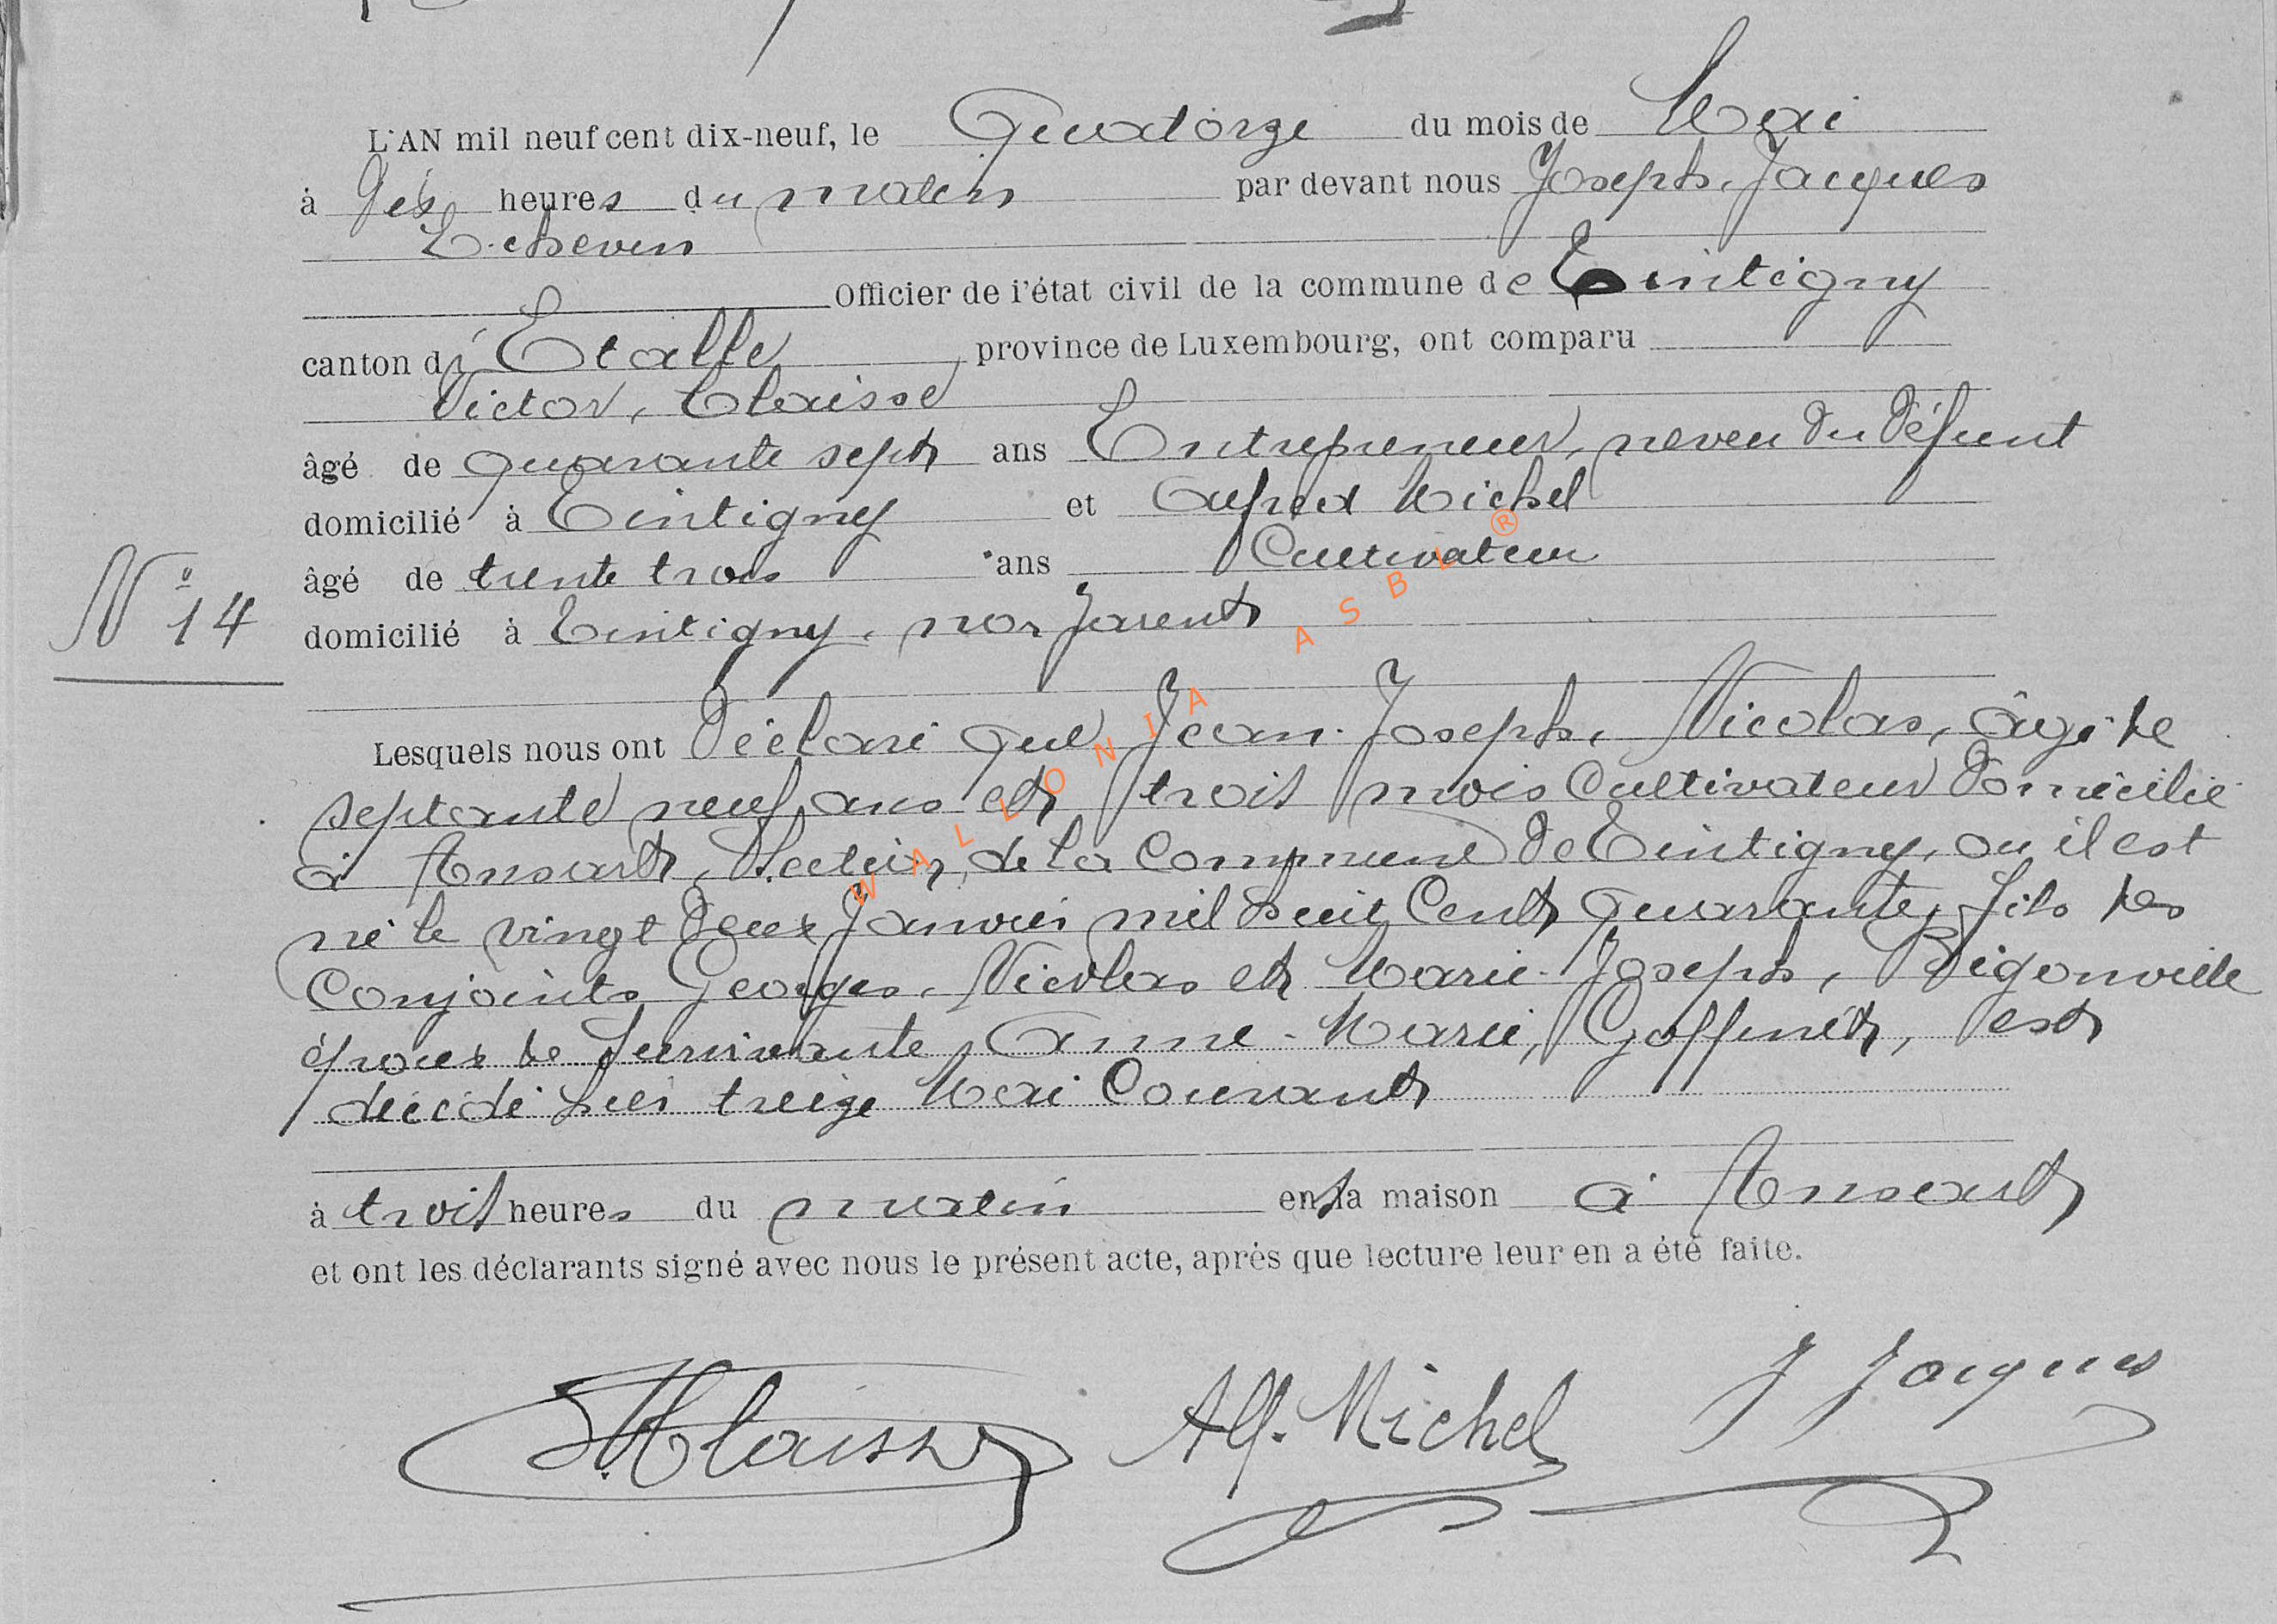 L'AN mil neuf cent dix-neuf, le Quatorze du mois de Mai
à dix heures du matin par devant nous Joseph, Jacques
Echevin
Officier de l'état civil de la commune de Tintigny
canton d'Etalle province de Luxembourg, ont comparu
Victor, Claisse
âgé de quarante sept ans Entrepreneur, neveu du défunt
domicilié à Tintigny et Alfred Michel
âgé de trente trois ans Cultivateur
N° 14
domicilié à Tintigny, non parent
Lesquels nous ont déclaré que Jean-Joseph, Nicolas, âgé de
septante neuf ans et trois mois Cultivateur domicilié
à Ansart, Section de la Commune de Tintigny, ou il est
né le vingt deux Janvier mil huit Cent quarante, fils des
Conjoints Georges, Nicolas et Marie-Joseph, Bigonville
époux de survivante Anne-Marie, Goffinet, est
décédé hier treize Mai Courant
à trois heures du matin en sa maison à Ansart
et ont les déclarants signé avec nous le présent acte, après que lecture leur en a été faite.
Claisse Alf. Michel J Jacques
WALLONIA ASBL ®